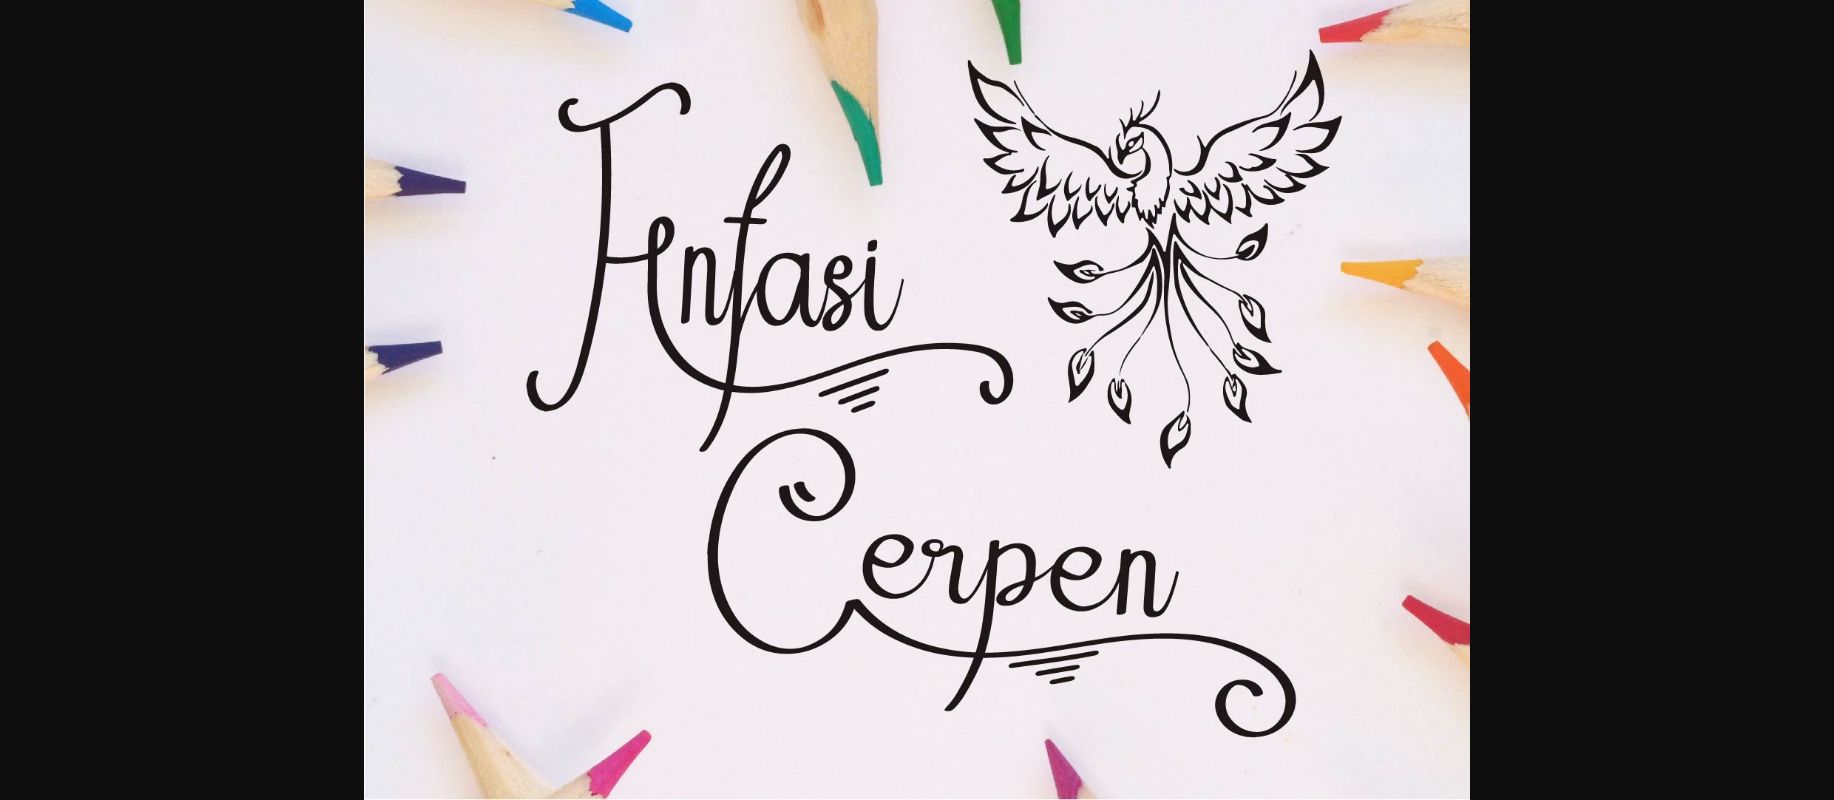 Hnfasi
Cerpen